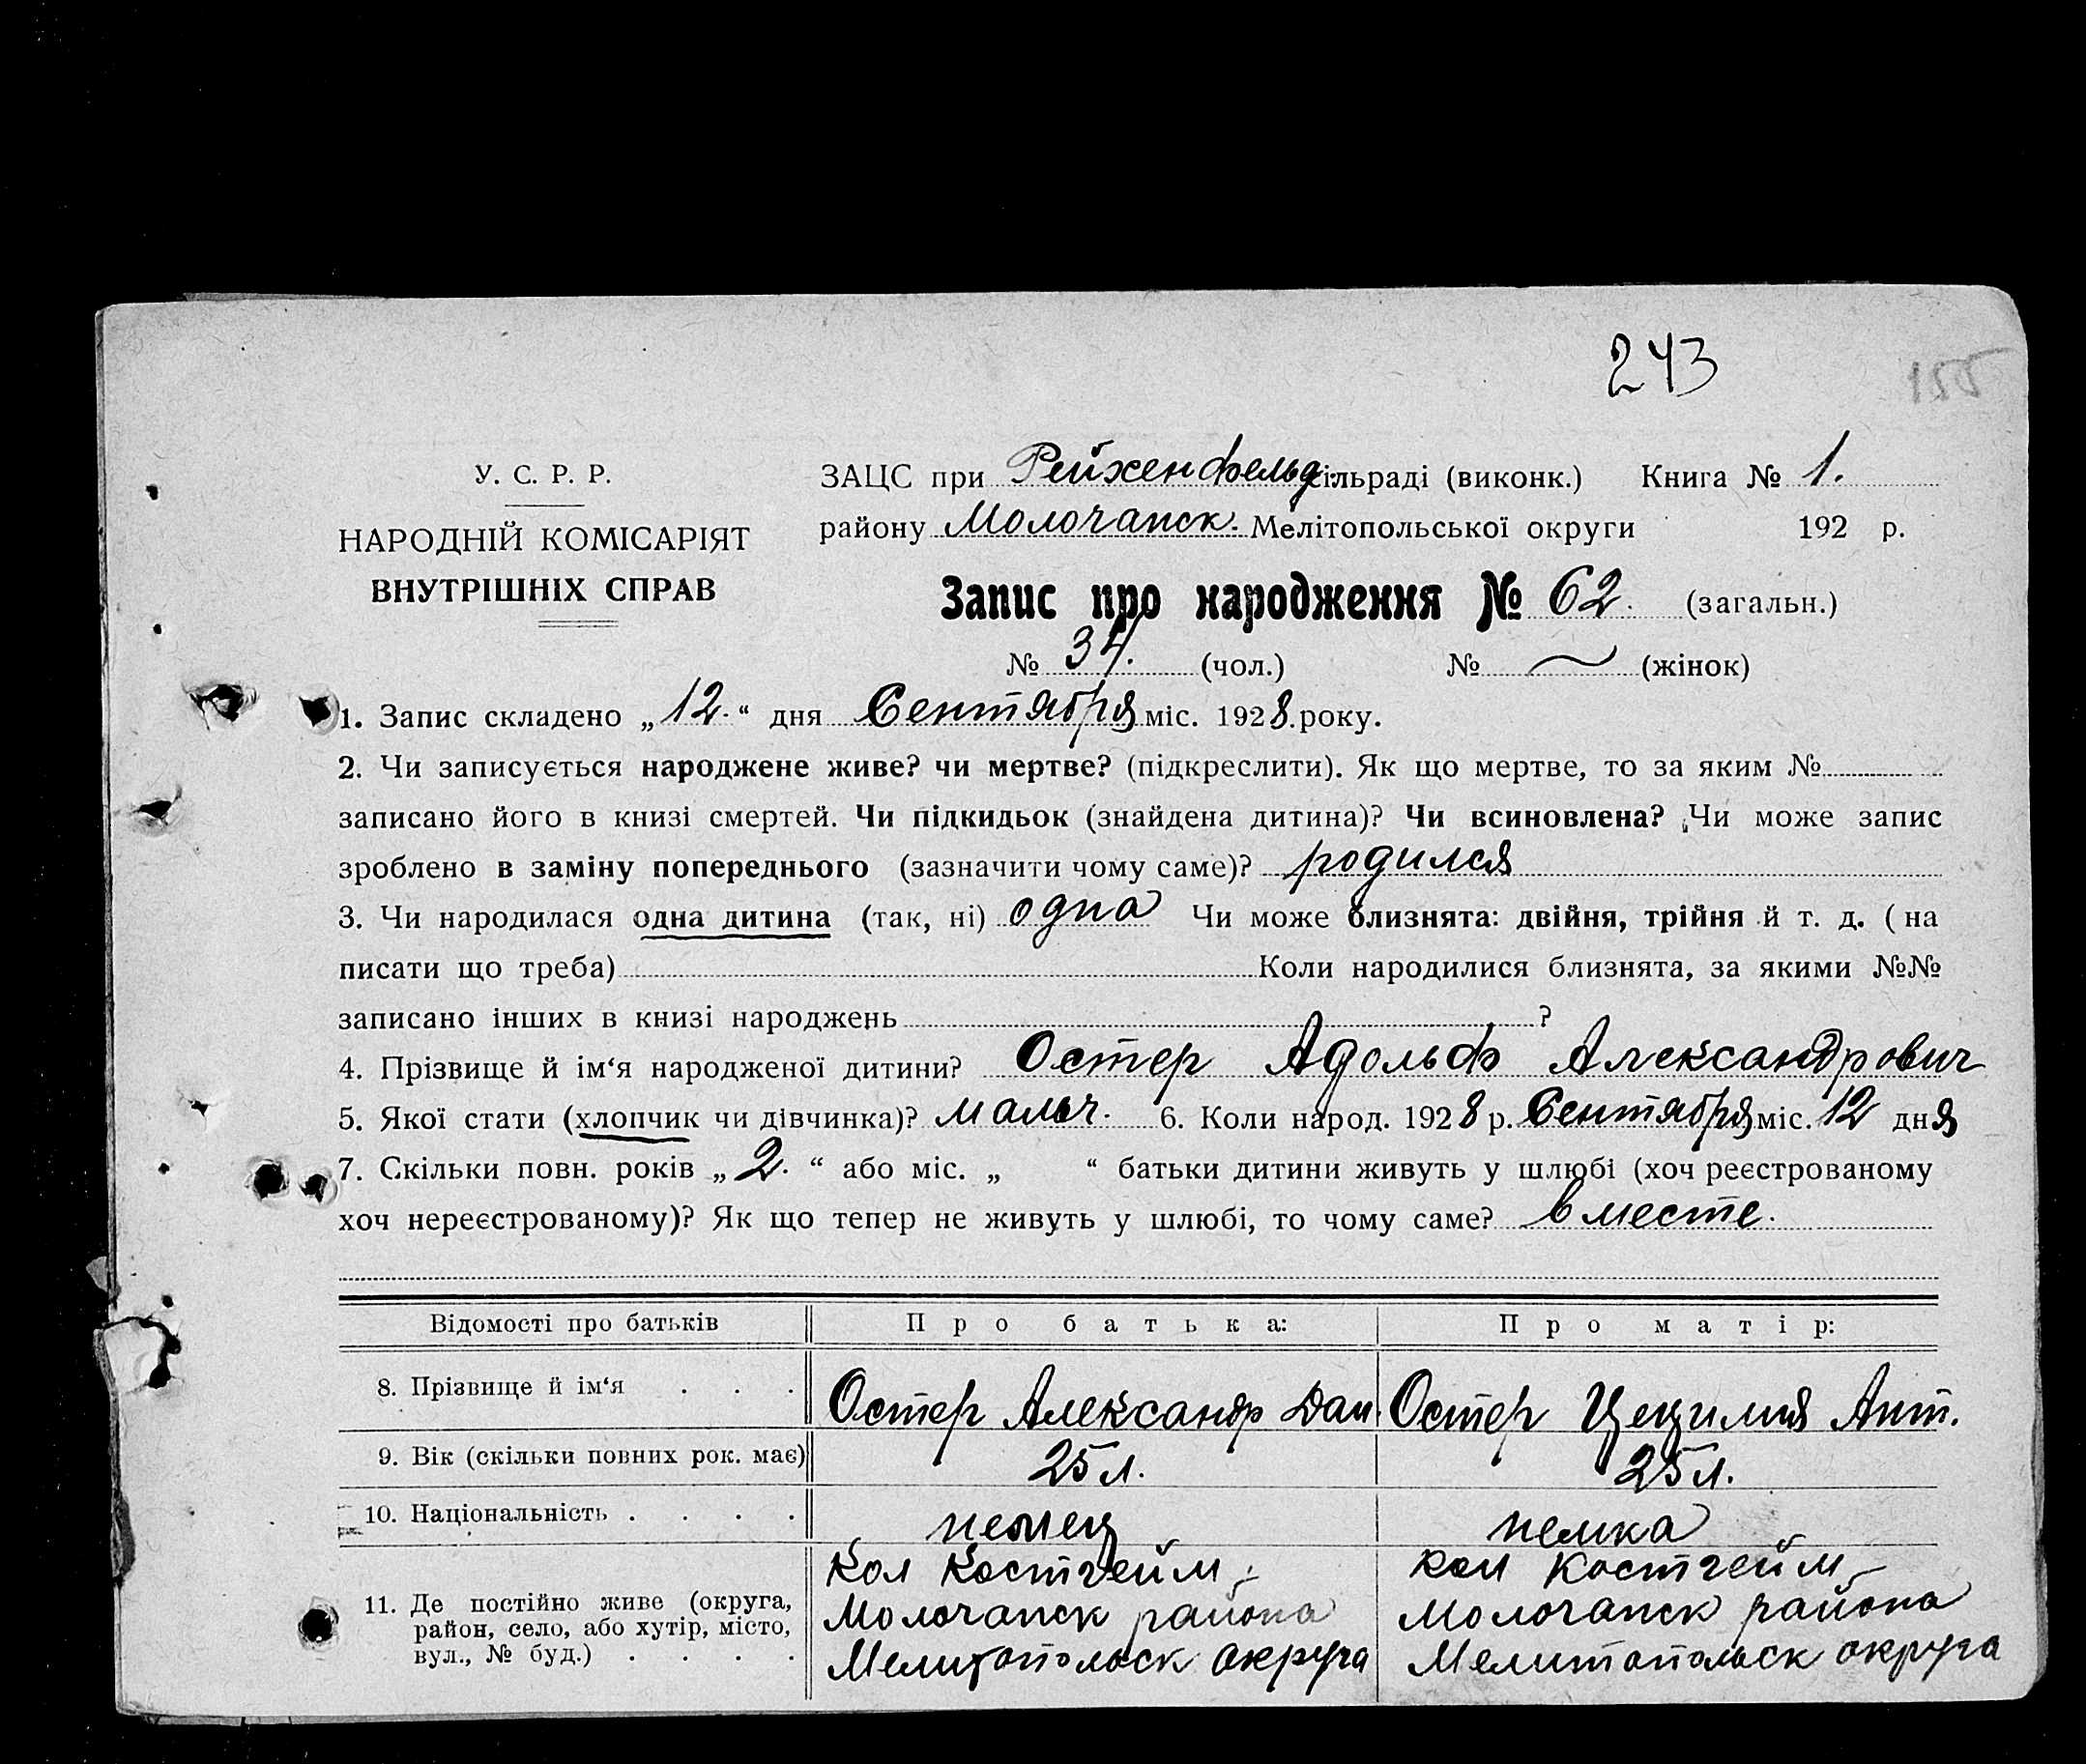 243
У. С. Р. Р.
ЗАЦС при Рейхенфельд. сільраді (виконк.) Книга № 1.
НАРОДНІЙ КОМІСАРІЯТ
району Молочанск. Мелітопольської округи 192 р.
ВНУТРІШНІХ СПРАВ
Запис про народження № 62. (загальн.)
№ 34. (чол.) № — (жінок)
1. Запис складено „12.“ дня Сентября міс. 1928. року.
2. Чи записується народжене живе? чи мертве? (підкреслити). Як що мертве, то за яким №
записано його в книзі смертей. Чи підкидьок (знайдена дитина)? Чи всиновлена? Чи може запис
зроблено в заміну попереднього (зазначити чому саме)? родился
3. Чи народилася одна дитина (так, ні) одна Чи може близнята: двійня, трійня й т. д. (на
писати що треба) Коли народилися близнята, за якими №№
записано інших в книзі народжень ?
4. Прізвище й ім‘я народженої дитини? Остер Адольф Александрович
5. Якої стати (хлопчик чи дівчинка)? мальч. 6. Коли народ. 1928 р. Сентября міс. 12 дня
7. Скільки повн. років „2.“ або міс. „ “ батьки дитини живуть у шлюбі (хоч реєстрованому
хоч нереєстрованому)? Як що тепер не живуть у шлюбі, то чому саме? вместе.
Відомості про батьків Про батька: Про матір:
8. Прізвище й ім‘я . . . Остер Александр Дан Остер Цецилия Ант.
9. Вік (скільки повних рок. має) 25 л. 25 л.
10. Національність . . . . немец немка
11. Де постійно живе (округа, район, село, або хутір, місто, вул., № буд.) . . . .
Кол Костгейм
Молочанск района
Мелитопольск округа
кол Костгейм
Молочанск района
Мелитопольск округа